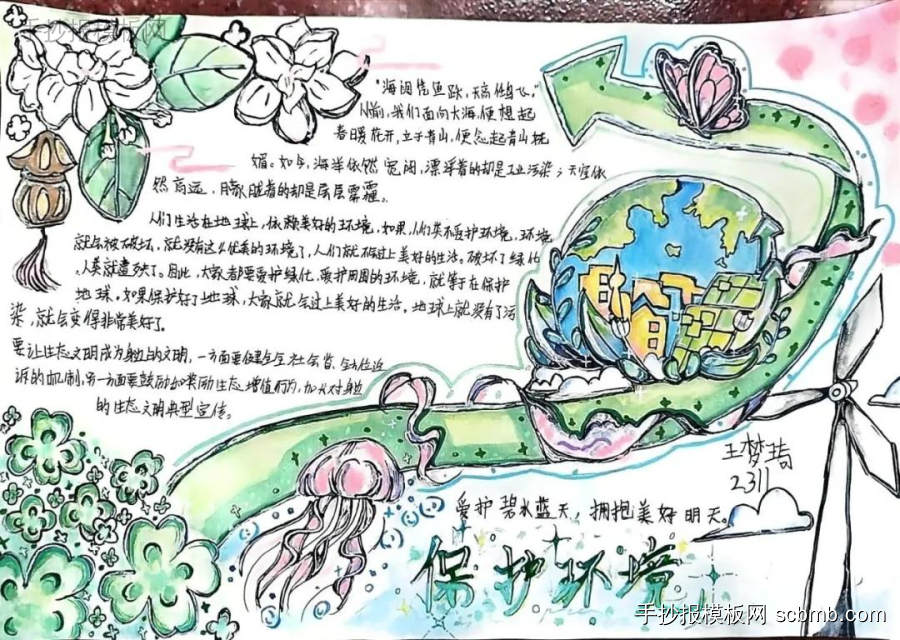 手抄报模板网
"海阔凭鱼跃，天高任鸟飞。"
从前，我们面向大海，便想起
春暖花开，立于青山，便念起青山妩
媚。如今，海洋依然宽阔，漂浮着的却是工业污染；天空依
然高远，朦胧着的却是层层雾霾。
人们生活在地球上，依赖美好的环境，如果，人们类不爱护环境，环境
就会被破坏，就没有这么优美的环境了，人们就不能过上美好的生活。破坏了绿化
人类就遭殃了。因此，大家都要爱护绿化，爱护周围的环境，就等于在保护
地球。如果保护好了地球，大家就会过上美好的生活。地球上就没有了污
染，就会变得非常美好了。
要让生态文明成为身边的文明，一方面要健全社会
诉的机制，另一方面要鼓励和奖励生态增值行为，加大对身边
的生态文明典型宣传。
王梦
2311
爱护碧水蓝天，拥抱美好明天。
保护环境
手抄报模板网 scbmb.com